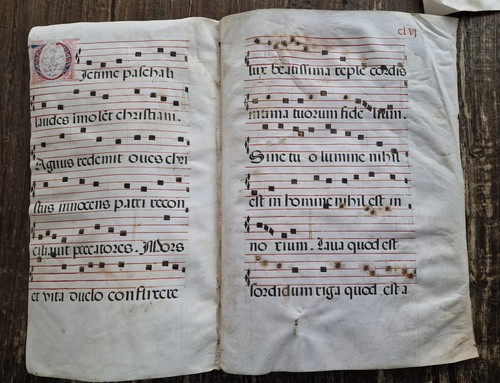 Victime paschali
laudes imolēt christiani.
Agnus redemit oues chri
stus innocens patri recon
ciliauit peccatores. Mors
et vita duelo conflixere
clvj
lux beatissima reple cordis
intima tuorum fide lium.
Sine tu o lumine nihil
est in homine nihil est in
no xium. Laua quod est
sordidum riga quod est a